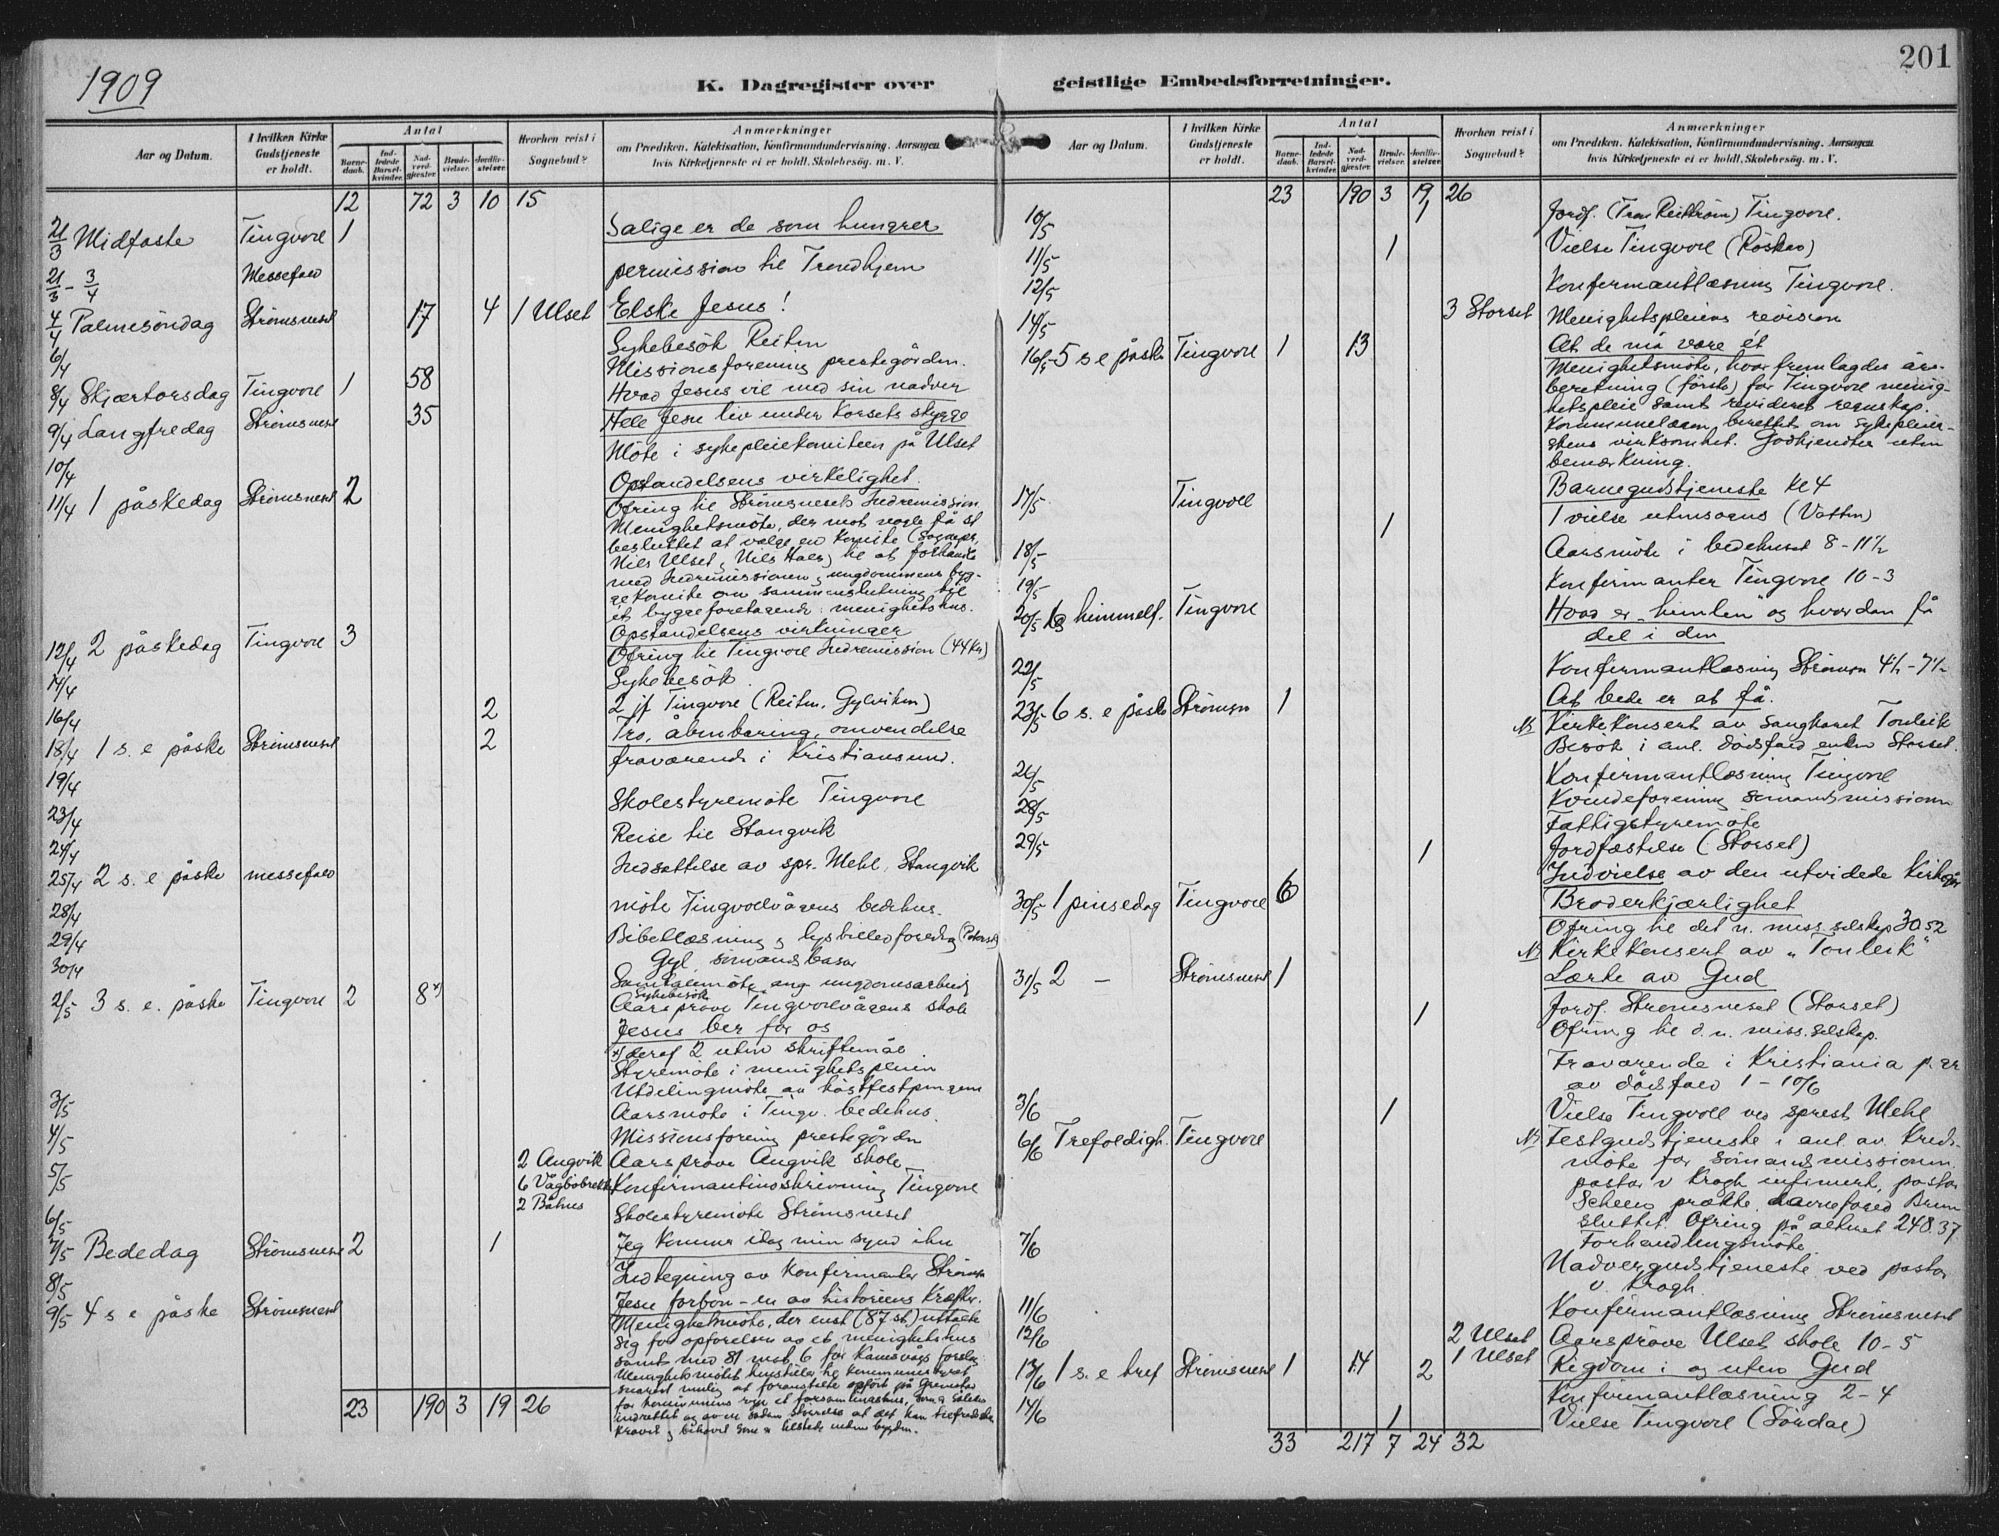 1909
K. Dagregister over
Aar og Datum.
I hvilken Kirke Gudstjeneste er holdt.
Antal
Barne-daab.
Ind-ledede Barsel-kvinder.
Nad-verd-gjæster.
Brude-vielser.
Jordfæ-stelser.
Hvorhen reist i Sognebud?
Anmærkninger
om Prædiken, Katekisation, Konfirmandundervisning, Aarsagen
hvis Kirketjeneste ei er holdt, Skolebesög. m. V.
12 72 3 10 15
21/3 Midfaste Tingvoll 1 Salige er de som hungrer
21/3 - 3/4 Messefald permission til Trondhjem
4/4 Palmesöndag Strömsneset 17 4 1 Ulset Elske Jesus!
Sykebesök Reiten
6/4 Missionsforening prestegården.
8/4 Skjærtorsdag Tingvoll 1 58 Hvad Jesus vil med sin nadver
9/4 Langfredag Strömsneset 35 Hele Jesu liv under korsets skygge
10/4 Möte i sykepleiekomiteen på Ulset
11/4 1 påskedag Strömsneset 2 Opstandelsens virkelighet.
Ofring til Strömsnesets Indremission
Menighetsmöte, der mot nogle få st
besluttet at vælge en komite (sognepr.
Nils Ulset, Nils Hals) til at forhandle
med Indremissionen, ungdommens byg-
gekomite om sammenslutning til
ét byggeforetagende: menighetshus.
12/4 2 påskedag Tingvoll 3 Opstandelsens virkninger
Ofring til Tingvoll Indremission (44 kr)
14/4 Sykebesök.
16/4 2 2 jf Tingvoll (Reiten, Gylviken)
18/4 1 s. e påske Strömsneset 2 Tro, åbenbaring, omvendelse
19/4 fraværende i Kristiansund.
23/4 Skolestyremöte Tingvoll
24/4 Reise til Stangvik
25/4 2 s. e påske messefald Indsættelse av spr. Mehl, Stangvik
28/4 möte Tingvollvågens bedehus.
29/4 Bibellæsning & lysbilledforedrag
30/4 Gyl sömandsbasar
Samtalemöte ang ungdomsarbeid
Sykebesök
2/5 3 s. e. påske Tingvoll 2 8*) Aarspröve Tingvollvågens skole
Jesus ber for os
*) deraf 2 uten skriftemål.
Styremöte i menighetspleien
Utdelingmöte av höstfestpengene
3/5 Aarsmöte i Tingv. bedehus.
4/5 Missionsforening prestegården
5/5 2 Angvik Aarspröve Angvik skole
6 Vågböbrekke Konfirmantinskrivning Tingvoll
6/5 2 Båhus Skolestyremöte Strömsneset
7/5 Bededag Strömsneset 2 1 Jeg kommer idag min synd ihu
8/5 Indtegning av konfirmanter Strömsn
9/5 4 s e påske Strömsneset Jesu forbön - en av historiens kræfter.
Menighetsmöte, der enst (87 st) uttalte
sig for opförelsen av et menighetshus
samt med 81 mot 6 for Kamsvågs forslag
23 190 3 19 26
201
geistlige Embedsforretninger.
Aar og Datum.
I hvilken Kirke Gudstjeneste er holdt.
Antal
Barne-daab.
Ind-ledede Barsel-kvinder.
Nad-verd-gjæster.
Brude-vielser.
Jordfæ-stelser.
Hvorhen reist i Sognebud?
Anmærkninger
om Prædiken, Katekisation, Konfirmandundervisning, Aarsagen
hvis Kirketjeneste ei er holdt, Skolebesög. m. V.
23 190 3 19 26
10/5 1 Jordf. Tingvoll.
11/5 1 Vielse Tingvoll (Röskes)
12/5 Konfirmantlæsning Tingvoll.
14/5 3 Storset Menighetspleiens revision
16/5 5 s e påske Tingvoll 1 13 At de må være ét
Menighetsmöte, hvor fremlagdes års-
beretning (förste) for Tingvoll menig-
hetspleie samt revideret regnskap.
Kommunelægen berettet om sykepleier-
skens virksomhet. Godkjendtes uten
bemærkning.
17/5 Tingvoll Barnegudstjeneste kl 4
1 1 vielse utensogns (Vatten)
18/5 Aarsmöte i bedehuset 8 - 11½
19/5 Konfirmanter Tingvoll 10 - 3
20/5 Kr himmelf. Tingvoll Hvad er "himlen" og hvordan få
del i den
22/5 Konfirmantlæsning Strömsn 4½ - 7½
23/5 6 s. e påske Strömsn 1 At bede er at få.
Kirkekonsert av sangkoret Tonleik
Besök i anl. dödsfald enken Storset.
26/5 Konfirmantlæsning Tingvoll
28/5 Kvindeforening sömandsmissionen
Fattigstyremöte
29/5 1 Jordfæstelse (Storset)
Indvielse av den utvidede kirkegår
30/5 1 pinsedag Tingvoll 6 Broderkjærlighet
Ofring til det n. miss. selskap 30.52
Kirkekonsert av "Tonleik"
31/5 2 - Strömsneset 1 Lærte av Gud
1 Jordf. Strömsneset (Storset)
Ofring til d. n. miss. selskap.
Fraværende i Kristiania p. gr
av dödsfald 1 - 10/6
3/6 1 Vielse Tingvoll ved sprest Mehl
6/6 Trefoldigh. Tingvoll Festgudstjeneste i anl. av Kreds-
möte for sömandsmissionen.
pastor v Krogh intimert, pastor
Scheen prækte,
sluttet. Ofring på alteret 248.37
7/6 Forhandlingsmöte
Nadvergudstjeneste ved pastor
v. Krogh.
11/6 Konfirmantlæsning Strömsneset
12/6 2 Ulset Aarspröve Ulset skole 10 - 5
13/6 1 s. e tref Strömsneset 1 14 2 1 Ulset Rigdom i og uten Gud
Konfirmantlæsning 2 - 4
14/6 1 Vielse Tingvoll (Sördal)
33 217 7 24 32